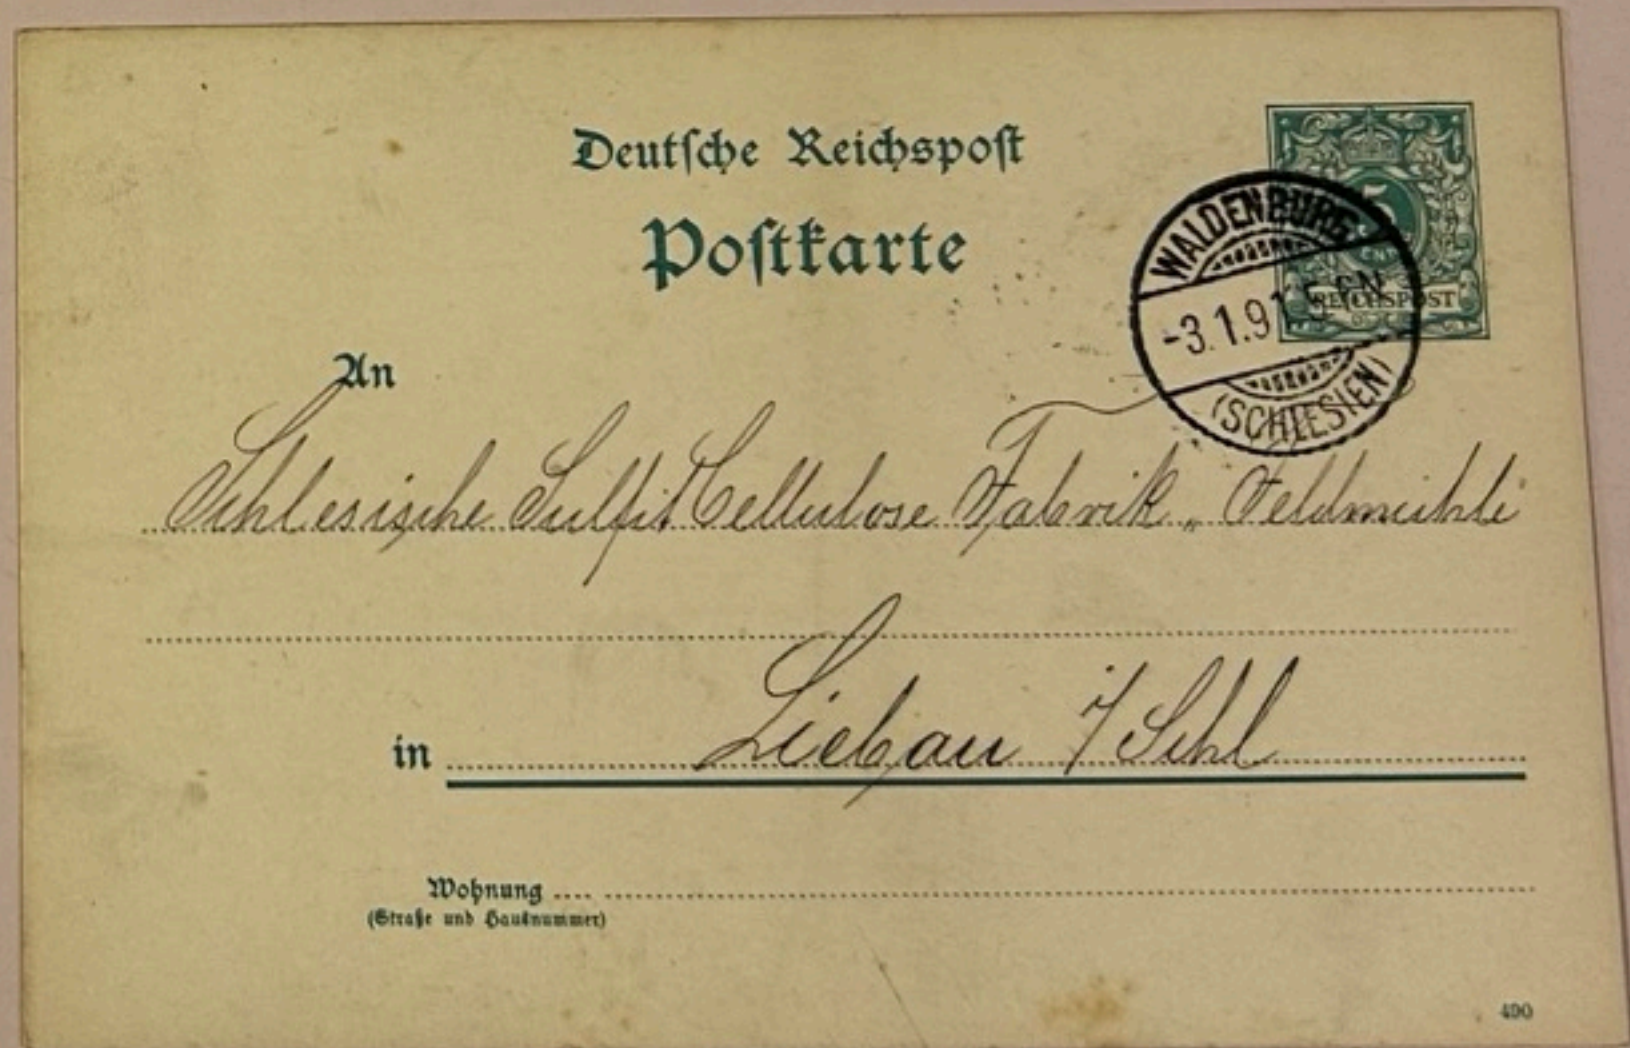 Deutsche Reichspost
Postkarte
5
REICHSPOST
WALDENBURG
-3.1.91 5-6N
(SCHLESIEN)
An
Schlesische Sulfit Cellulose Fabrik „Feldmühle
in Liebau i/Schl
Wohnung
(Straße und Hausnummer)
490